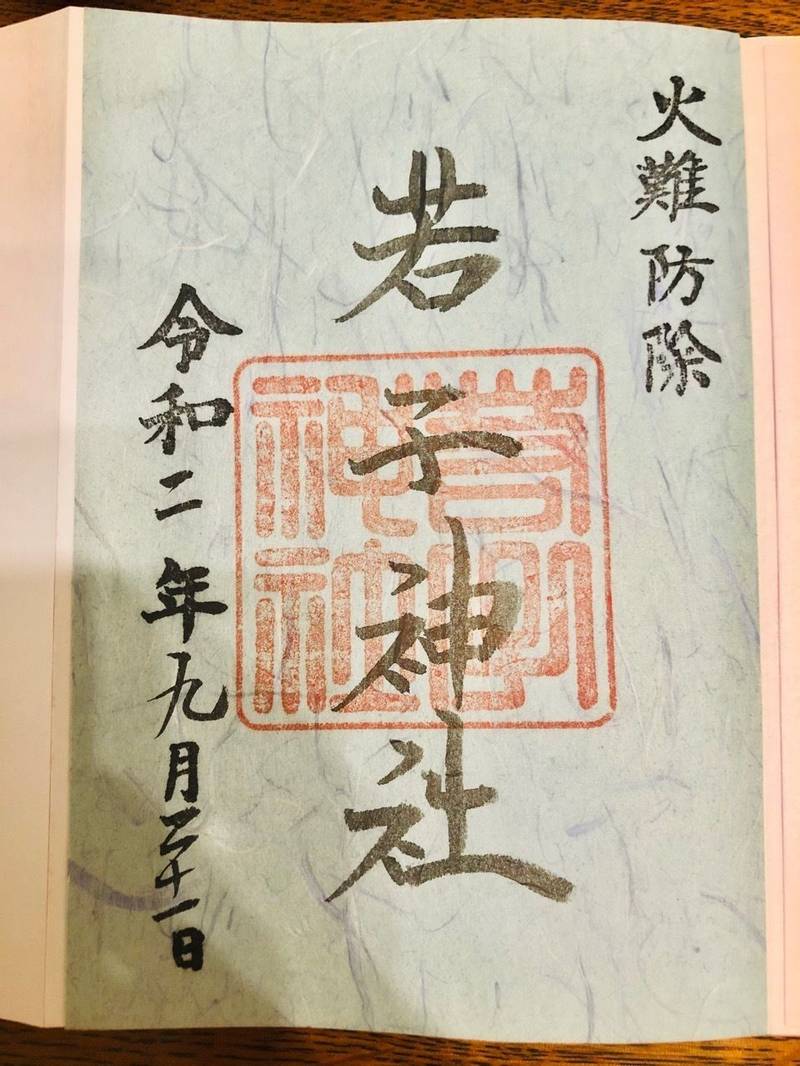 火難防除
若子神社
令和二年九月二十一日